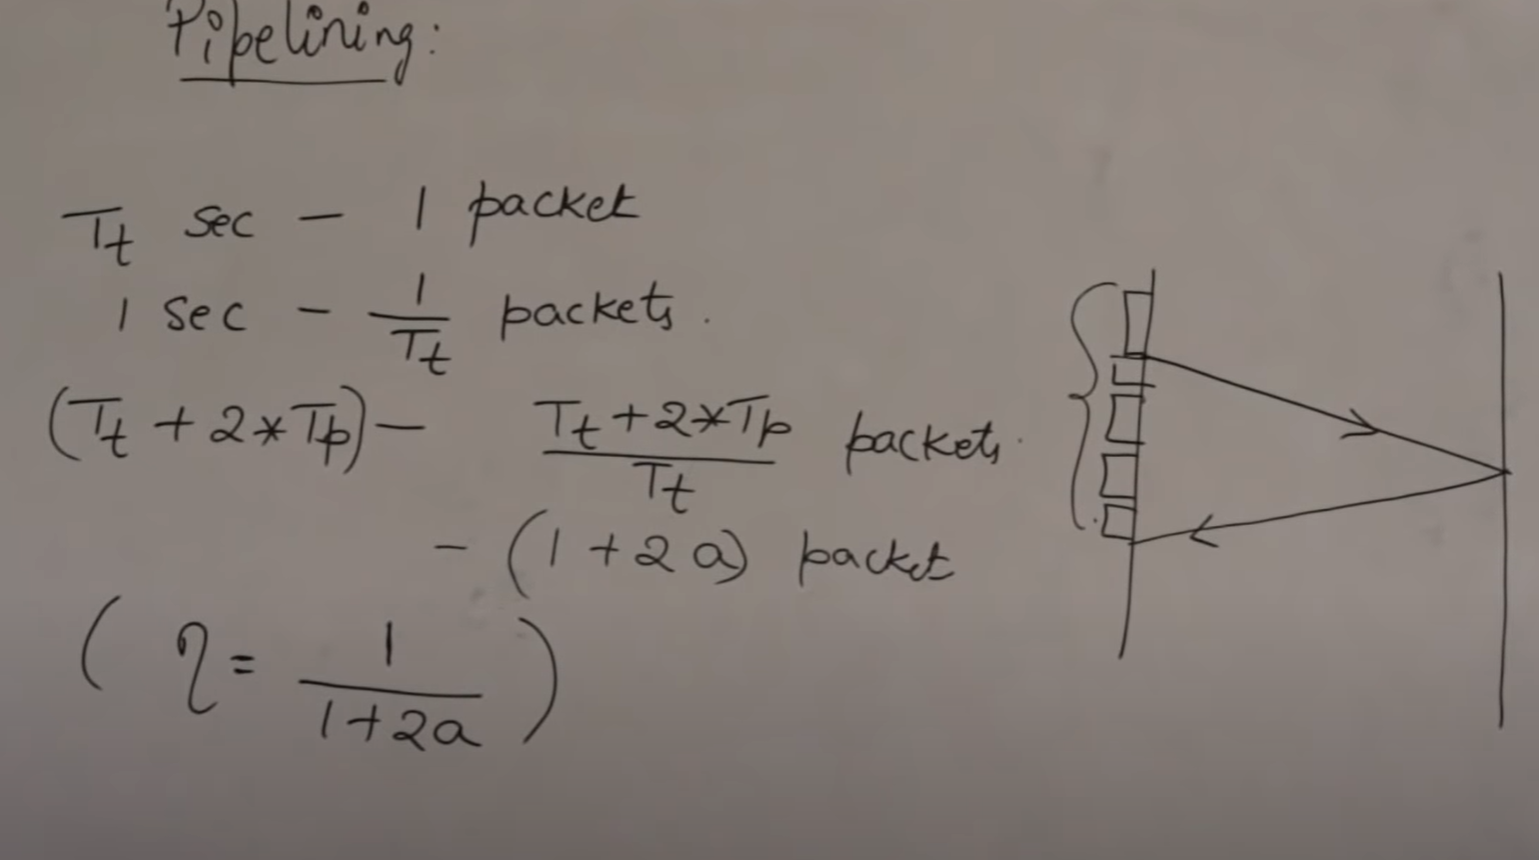 Pipelining:
Tt sec - 1 packet
1 sec - 1/Tt packets.
(Tt + 2*Tp) - (Tt + 2*Tp)/Tt packets.
- (1 + 2a) packet
(η = 1/(1+2a))